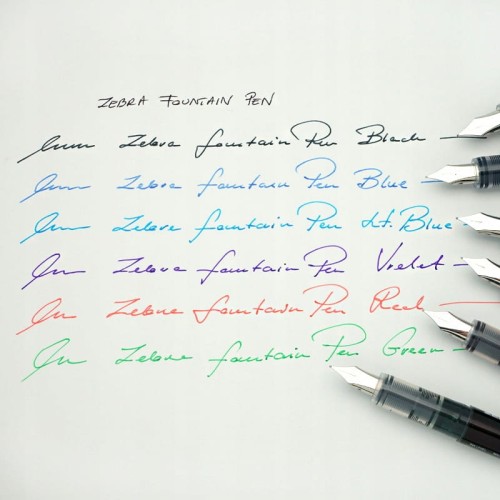 ZEBRA FOUNTAIN PEN
Zebra fountain Pen Black
Zebra fountain Pen Blue
Zebra fountain Pen Lt. Blue
Zebra fountain Pen Violet
Zebra fountain Pen Red
Zebra fountain Pen Green